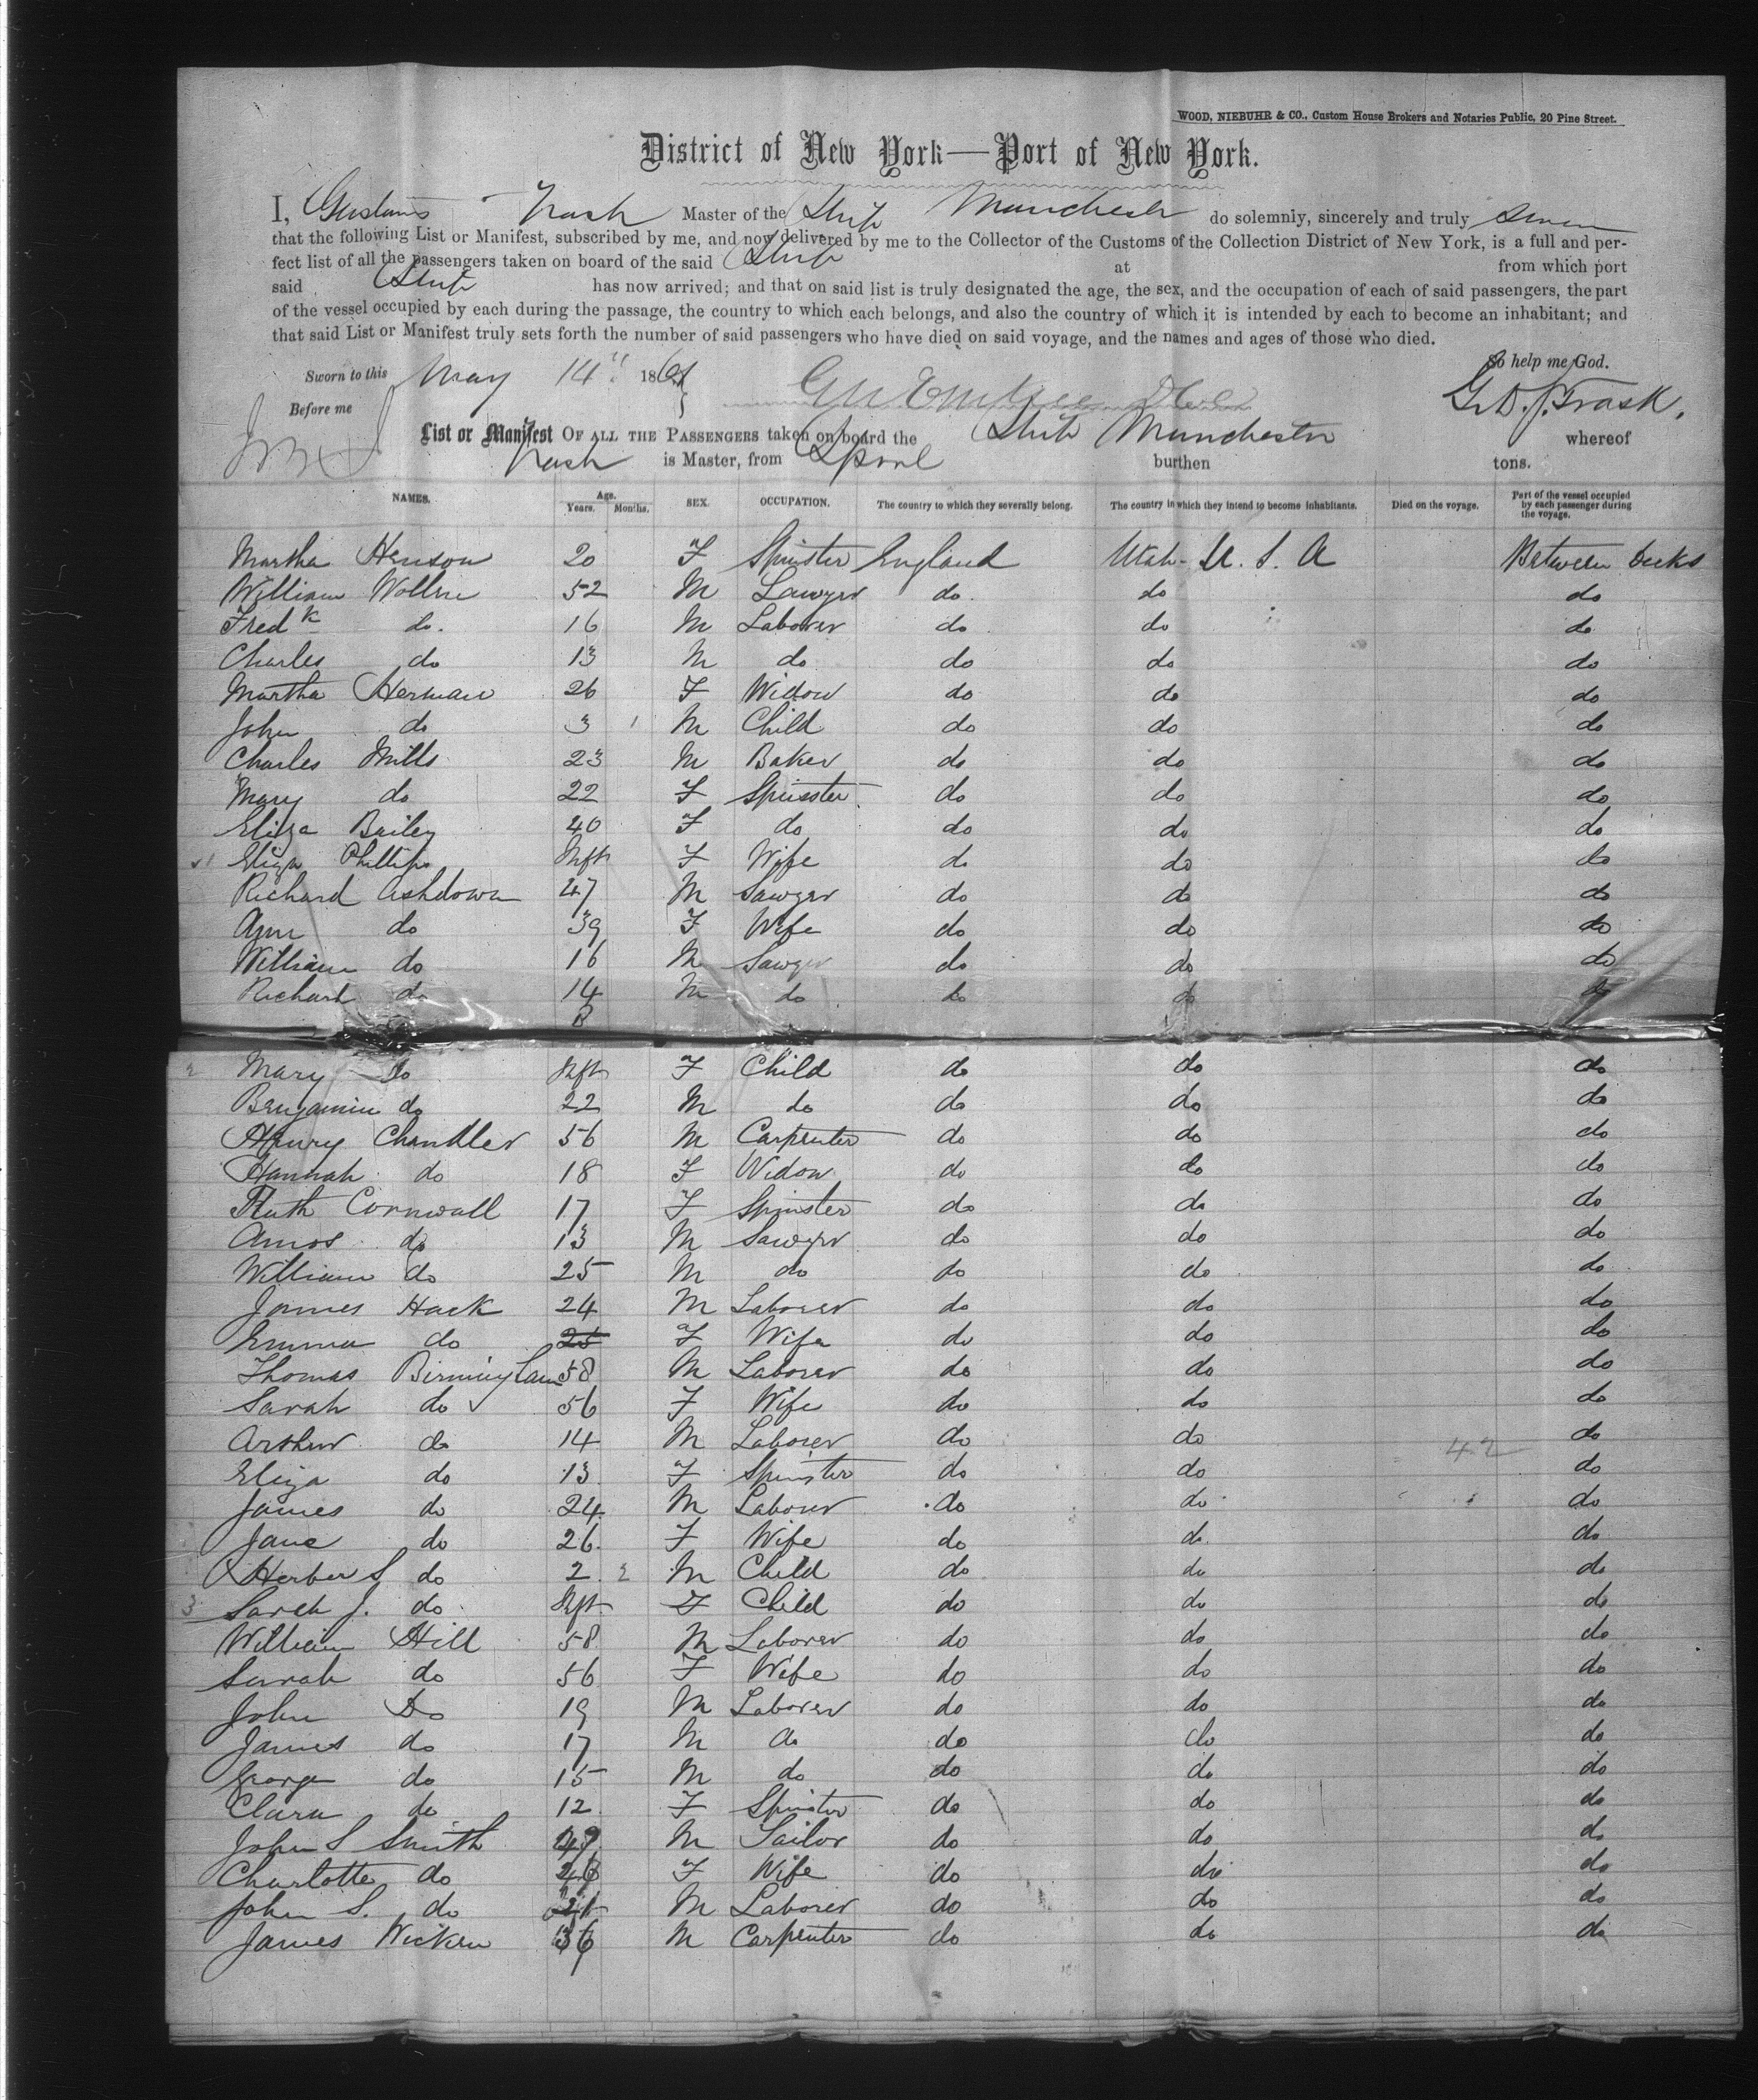 WOOD, NIEBUHR & CO., Custom House Brokers and Notaries Public, 20 Pine Street.
District of New York—Port of New York.
I, Gustavus Trask Master of the Ship Manchester do solemnly, sincerely and truly swear
that the following List or Manifest, subscribed by me, and now delivered by me to the Collector of the Customs of the Collection District of New York, is a full and per-
fect list of all the passengers taken on board of the said Ship at from which port
said Ship has now arrived; and that on said list is truly designated the age, the sex, and the occupation of each of said passengers, the part
of the vessel occupied by each during the passage, the country to which each belongs, and also the country of which it is intended by each to become an inhabitant; and
that said List or Manifest truly sets forth the number of said passengers who have died on said voyage, and the names and ages of those who died.
So help me God.
Sworn to this May 14" 1861
Before me G. D. S. Trask.
List or Manifest OF ALL THE PASSENGERS taken on board the Ship Manchester whereof
Trask is Master, from Lpool burthen tons.
NAMES. Age. Years. Months. SEX. OCCUPATION. The country to which they severally belong. The country in which they intend to become inhabitants. Died on the voyage. Part of the vessel occupied by each passenger during the voyage.
Martha Henson 20 F Spinster England Utah- U. S. A Between Decks
William Wollen 52 M Lawyer do do do
Fredk do. 16 M Laborer do do do
Charles do 13 M do do do do
Martha Herman 26 F Widow do do do
John do 3 1 M Child do do do
Charles Mills 23 M Baker do do do
Mary do 22 F Spinster do do do
Eliza Bailey 40 F do do do do
1 Eliza Phillips Inft F Wife do do do
Richard Ashdown 47 M Sawyer do do do
Ann do 39 F Wife do do do
William do 16 M Sawyer do do do
Richard do 14 M do do do do
2 Mary do Inft F Child do do do
Benjamin do 22 M do do do do
Henry Chandler 56 M Carpenter do do do
Hannah do 18 F Widow do do do
Ruth Cornwall 17 F Spinster do do do
Amos do 13 M Sawyer do do do
William do 25 M do do do do
James Hack 24 M Laborer do do do
Emma do 25 F Wife do do do
Thomas Birmingham 58 M Laborer do do do
Sarah do 56 F Wife do do do
Arthur do 14 M Laborer do do 42 do
Eliza do 13 F Spinster do do do
James do 24 M Laborer do do do
Jane do 26 F Wife do do do
Herber S do 2 2 M Child do do do
3 Sarah J. do Inft F Child do do do
William Hill 58 M Laborer do do do
Sarah do 56 F Wife do do do
John Do 19 M Laborer do do do
James do 17 M do do do do
George do 15 M do do do do
Clara do 12 F Spinster do do do
John S Smith 49 M Tailor do do do
Charlotte do F Wife do do do
John S. do M Laborer do do do
James Wicken 36 M Carpenter do do do